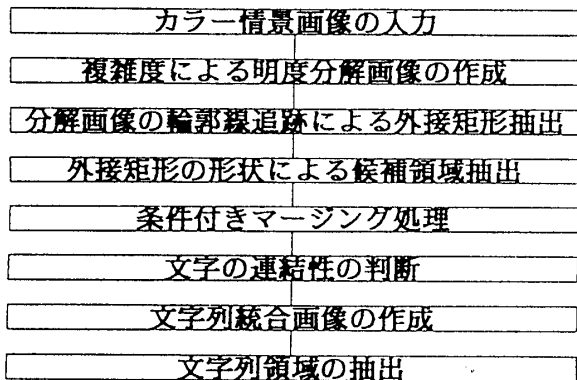 カラー情景画像の入力
複雑度による明度分解画像の作成
分解画像の輪郭線追跡による外接矩形抽出
外接矩形の形状による候補領域抽出
条件付きマージング処理
文字の連結性の判断
文字列統合画像の作成
文字列領域の抽出